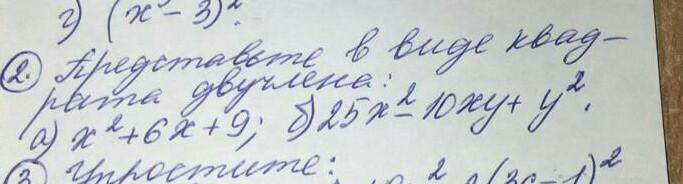 г) (x³ - 3)².
2. Представьте в виде квад-
рата двучлена:
а) x² + 6x + 9; б) 25x² - 10xy + y².
3. Упростите:
(3c - 1)²